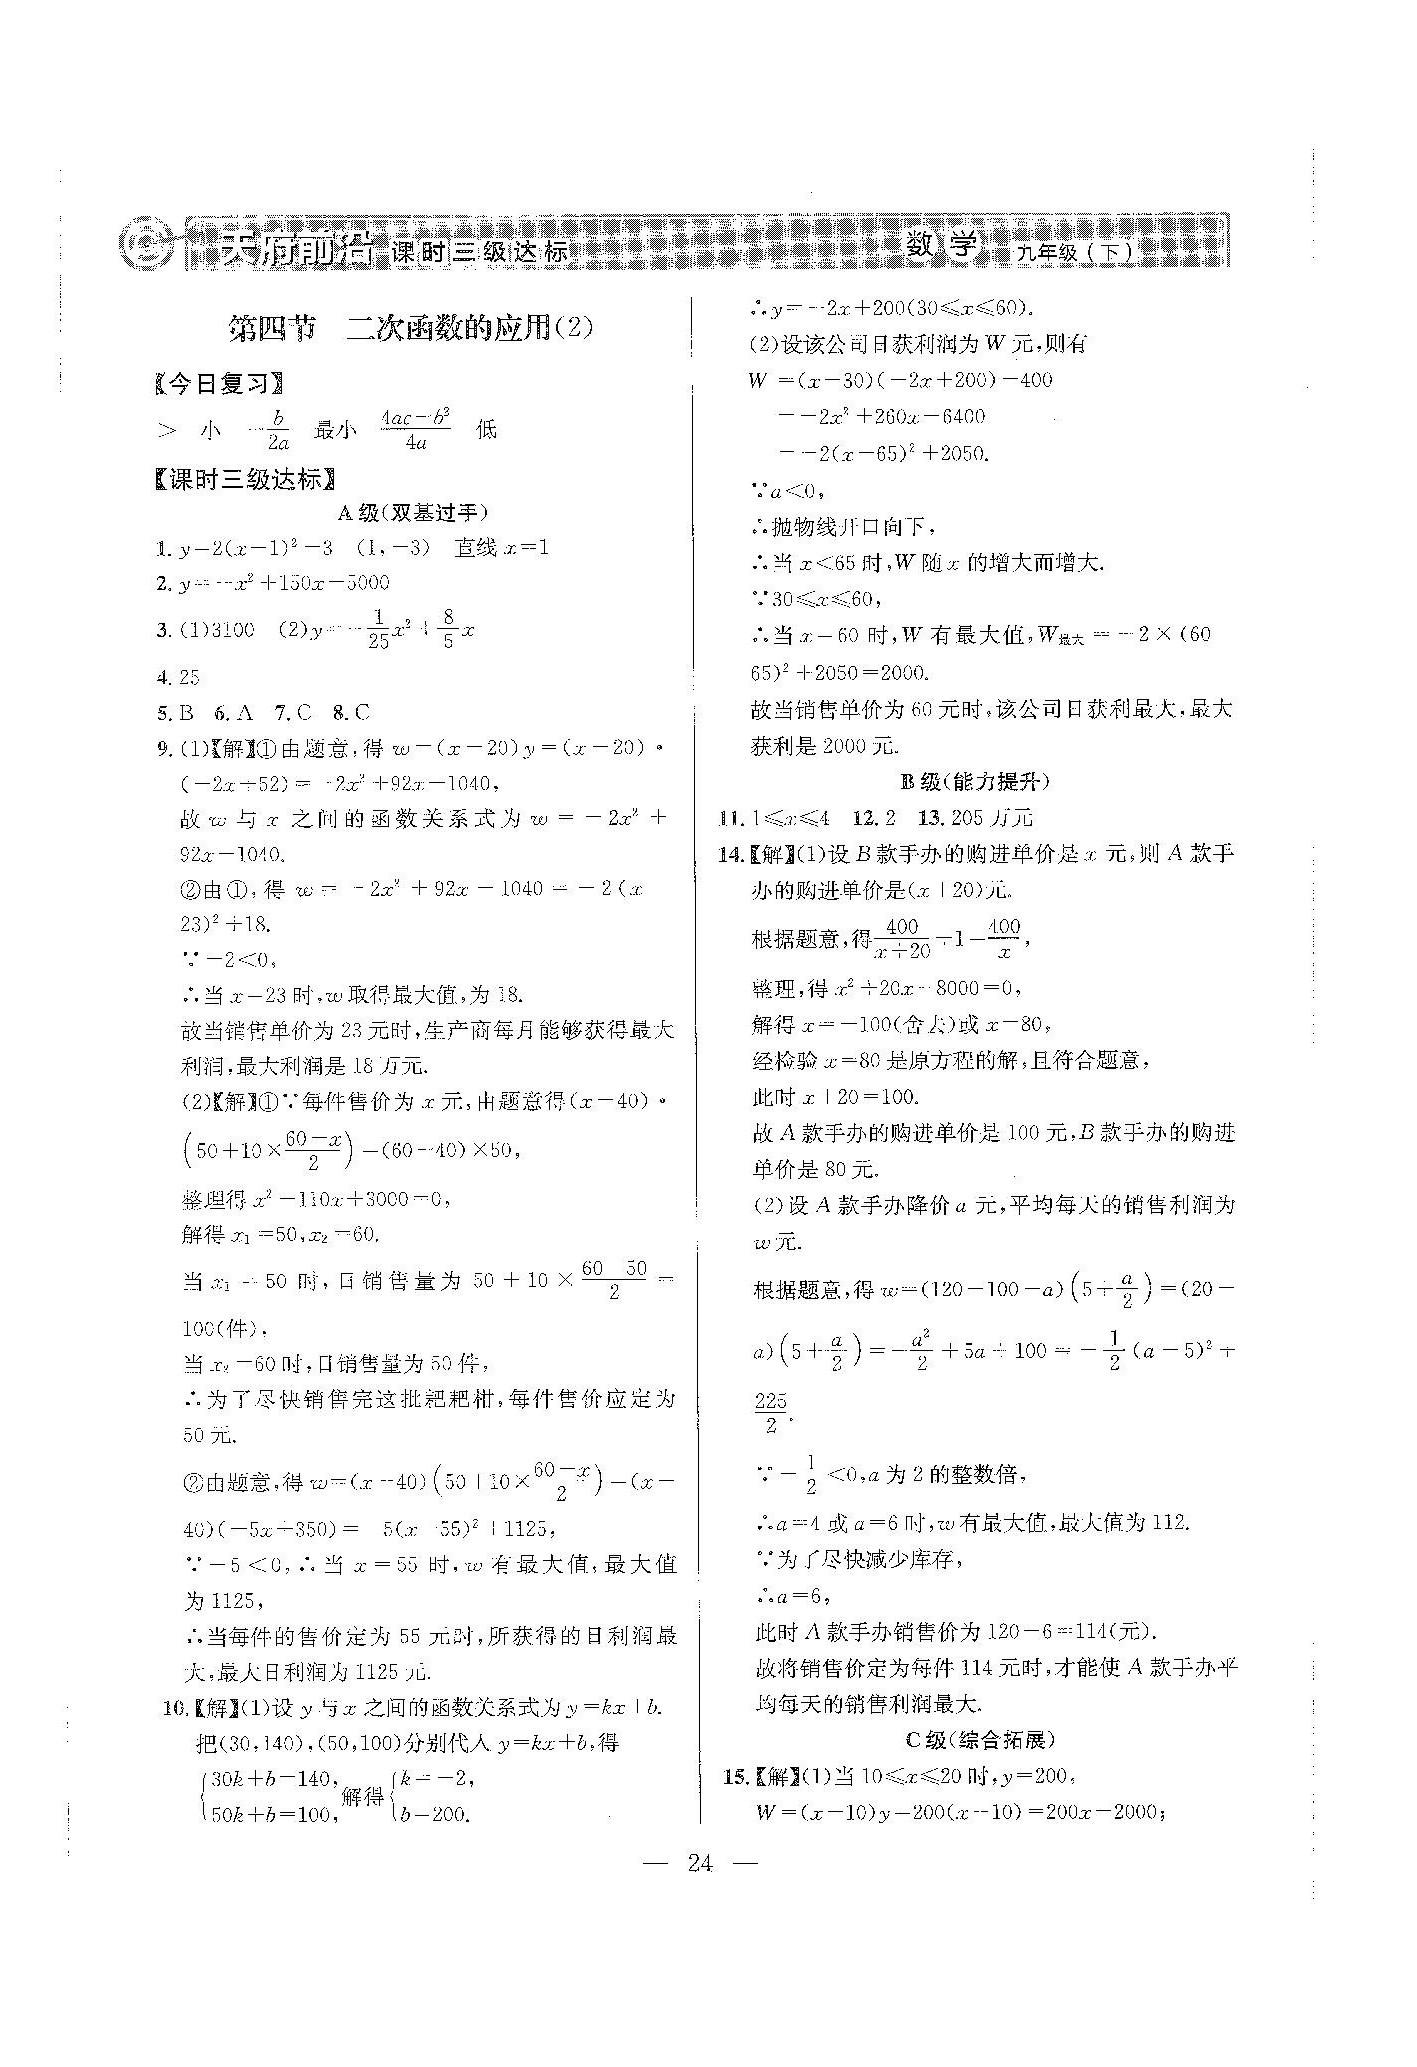 天府前沿 课时三级达标 数学 九年级(下)
第四节 二次函数的应用(2)
【今日复习】
> 小 -b/2a 最小 (4ac-b²)/4a 低
【课时三级达标】
A级(双基过手)
1. y=2(x-1)²-3 (1,-3) 直线x=1
2. y=-x²+150x-5000
3. (1)3100 (2)y=-1/25x²+8/5x
4. 25
5. B 6. A 7. C 8. C
9. (1)【解】①由题意,得w=(x-20)y=(x-20)·
(-2x+52)=-2x²+92x-1040,
故w与x之间的函数关系式为w=-2x²+
92x-1040.
②由①,得w=-2x²+92x-1040=-2(x-
23)²+18.
∵-2<0,
∴当x=23时,w取得最大值,为18.
故当销售单价为23元时,生产商每月能够获得最大
利润,最大利润是18万元.
(2)【解】①∵每件售价为x元,由题意得(x-40)·
(50+10×(60-x)/2)=(60-40)×50,
整理得x²-110x+3000=0,
解得x₁=50,x₂=60.
当x₁=50时,日销售量为50+10×(60-50)/2=
100(件),
当x₂=60时,日销售量为50件,
∴为了尽快销售完这批粑粑柑,每件售价应定为
50元.
②由题意,得w=(x-40)(50+10×(60-x)/2)=(x-
40)(-5x+350)=-5(x-55)²+1125,
∵-5<0,∴当x=55时,w有最大值,最大值
为1125,
∴当每件的售价定为55元时,所获得的日利润最
大,最大日利润为1125元.
10.【解】(1)设y与x之间的函数关系式为y=kx+b.
把(30,140),(50,100)分别代入y=kx+b,得
{30k+b=140, 50k+b=100, 解得{k=-2, b=200.
∴y=-2x+200(30≤x≤60).
(2)设该公司日获利润为W元,则有
W=(x-30)(-2x+200)-400
=-2x²+260x-6400
=-2(x-65)²+2050.
∵a<0,
∴抛物线开口向下,
∴当x<65时,W随x的增大而增大.
∵30≤x≤60,
∴当x=60时,W有最大值,W最大=-2×(60-
65)²+2050=2000.
故当销售单价为60元时,该公司日获利最大,最大
获利是2000元.
B级(能力提升)
11. 1≤x≤4 12. 2 13. 205万元
14.【解】(1)设B款手办的购进单价是x元,则A款手
办的购进单价是(x+20)元。
根据题意,得400/(x+20)+1=400/x,
整理,得x²+20x-8000=0,
解得x=-100(舍去)或x=80,
经检验x=80是原方程的解,且符合题意,
此时x+20=100.
故A款手办的购进单价是100元,B款手办的购进
单价是80元.
(2)设A款手办降价a元,平均每天的销售利润为
w元.
根据题意,得w=(120-100-a)(5+a/2)=(20-
a)(5+a/2)=-a²/2+5a+100=-1/2(a-5)²+
225/2.
∵-1/2<0,a为2的整数倍,
∴a=4或a=6时,w有最大值,最大值为112.
∵为了尽快减少库存,
∴a=6,
此时A款手办销售价为120-6=114(元).
故将销售价定为每件114元时,才能使A款手办平
均每天的销售利润最大.
C级(综合拓展)
15.【解】(1)当10≤x≤20时,y=200,
W=(x-10)y=200(x-10)=200x-2000;
— 24 —